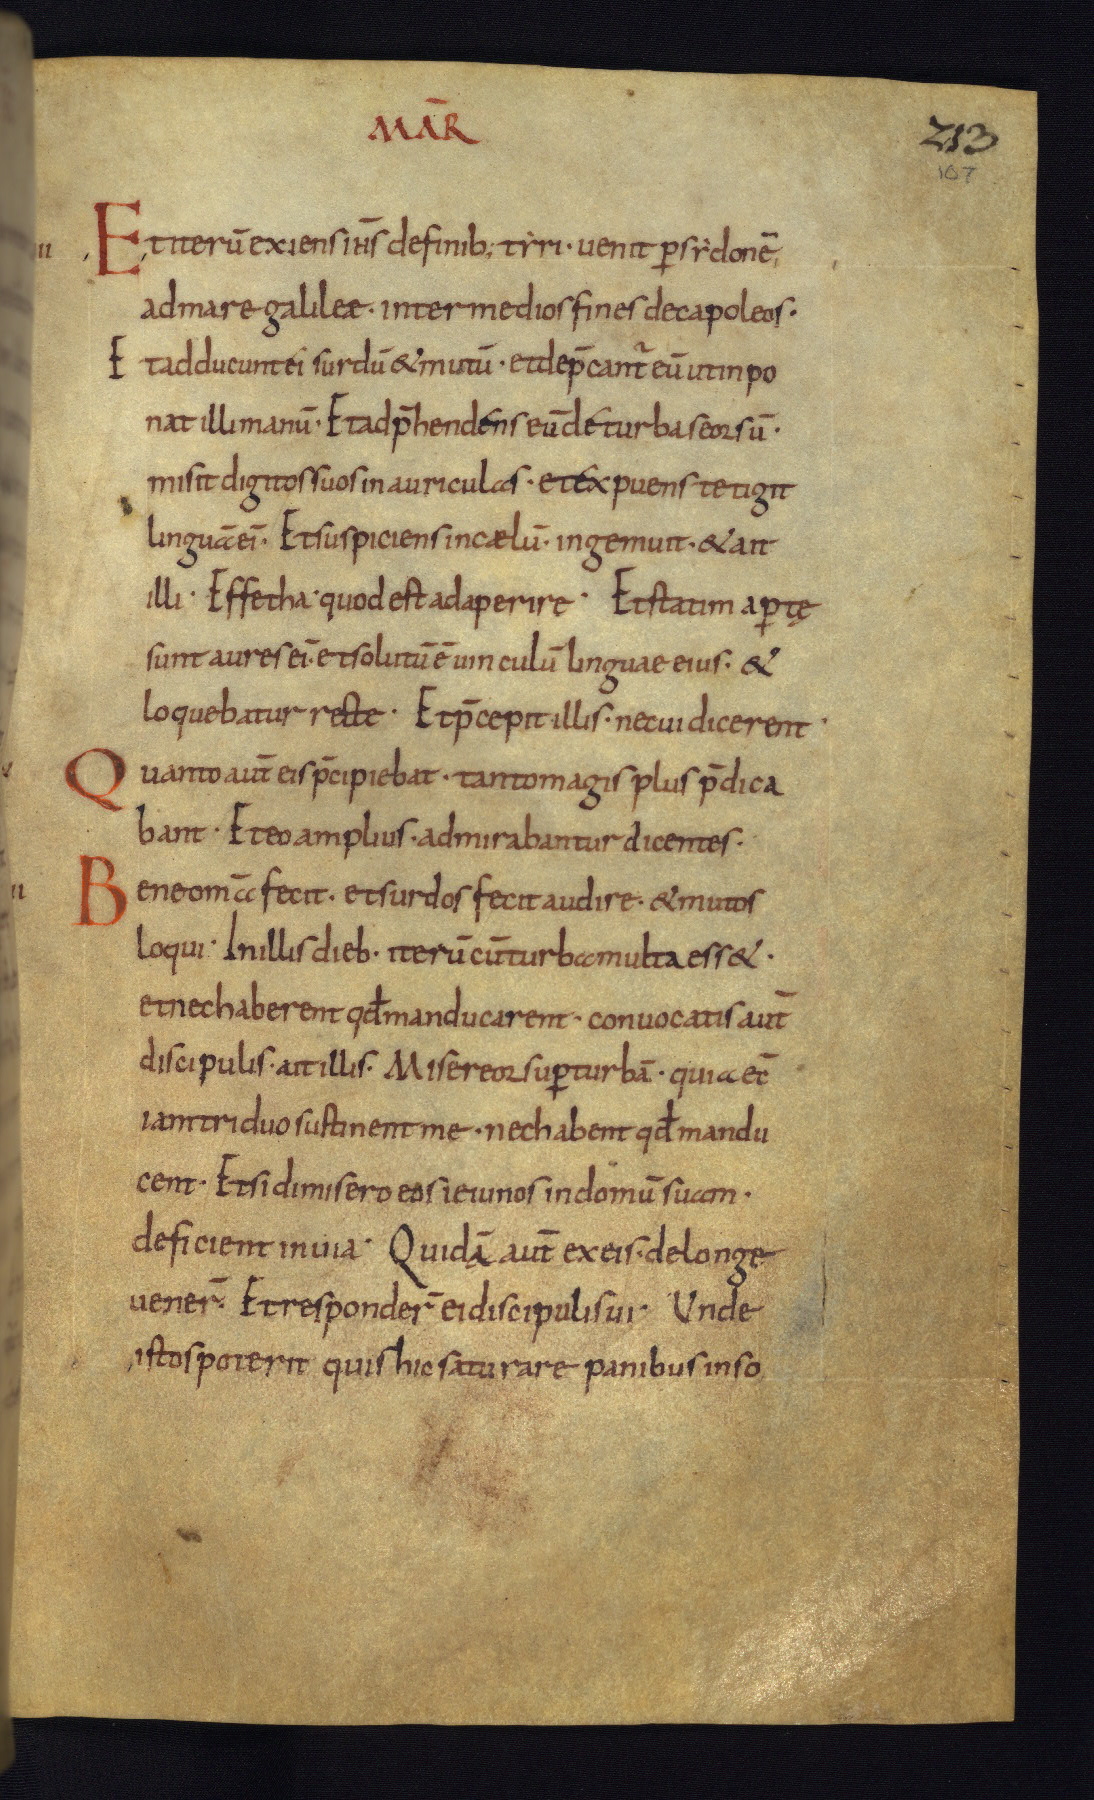 MAR̄
213
107
Et iterū exiens ih̄s de finib; tẏri · uenit ꝑ sẏdonē,
ad mare galileæ · inter medios fines decapoleos ·
Et adducunt ei surdū & mutū · et dep̄cant̄ eū ut inpo
nat illi manū · Et adp̄hendens eū de turba seorsū ·
misit digitos suos in auriculas · et expuens tetigit
linguā ei᷒ · Et suspiciens in cælū · ingemuit · & ait
illi · Effetha · quod est adaperire · Et statim aꝑtę
sunt aures ei᷒ · et solutū ē uinculū linguae eius · &
loquebatur recte · Et p̄cepit illis · ne cui dicerent ·
Quanto aut̄ eis p̄cipiebat · tanto magis plus p̄dica
bant · Et eo amplius · admirabantur dicentes ·
ii
Bene om̄a fecit · et surdos fecit audire · & mutos
loqui · In illis dieb · iterū cū turba multa ess& ·
et nec haberent qđ manducarent · conuocatis aut̄
discipulis · ait illis · Misereor suꝑ turbā · quia ec̄
iam triduo sustinent me · nec habent qđ mandu
cent · Et si dimisero eos ieiunos in domū suam ·
deficient in uia · Quidā aut̄ ex eis · de longe
uener̄ · Et responder̄ ei discipuli sui · Unde
istos poterit quis hic saturare panibus in so